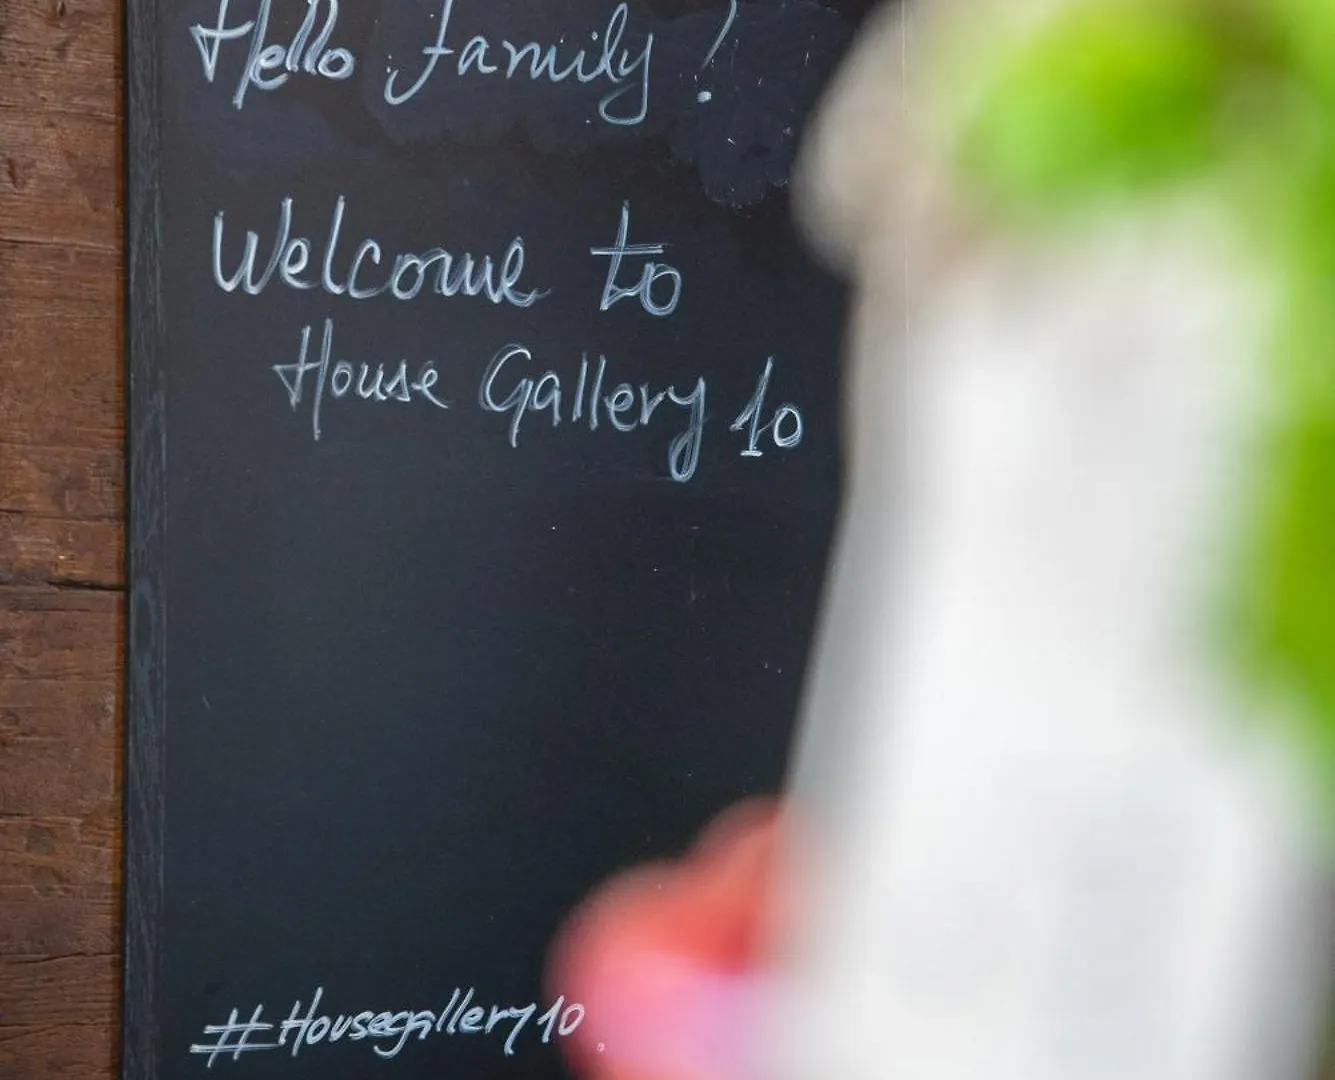 Hello Family!
Welcome to
House Gallery 10
#Housegallery10